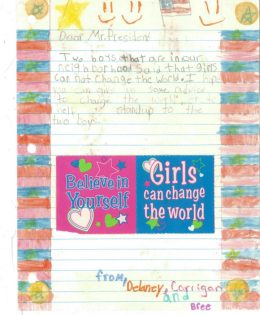 Dear Mr. President
Two boys that are in our
neighborhood said that girls
can not change the world. I hope
you can give us some advice
to change the world, or to
help us standup to the
two boys.
Believe in
Yourself
Girls
can change
the world
from, Delaney, Corrigan
and
Bree